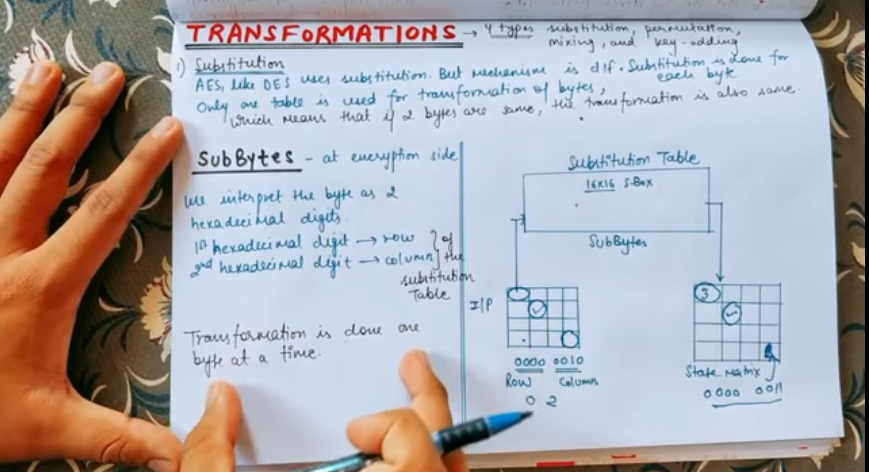 TRANSFORMATIONS → 4 types substitution, permutation,
mixing, and key-adding
1) Substitution
AES, like DES uses substitution. But mechanism is dif. Substitution is done for
each byte
Only one table is used for transformation of bytes,
which means that if 2 bytes are same, the transformation is also same.
SubBytes - at encryption side
We interpret the byte as 2
hexadecimal digits.
1st hexadecimal digit → row
2nd hexadecimal digit → column
} of
the
substitution
Table
Transformation is done one
byte at a time.
Substitution Table
16x16 S-Box
SubBytes
I/P
3
0000 0010
Row Column
0 2
State Matrix
0000 0011